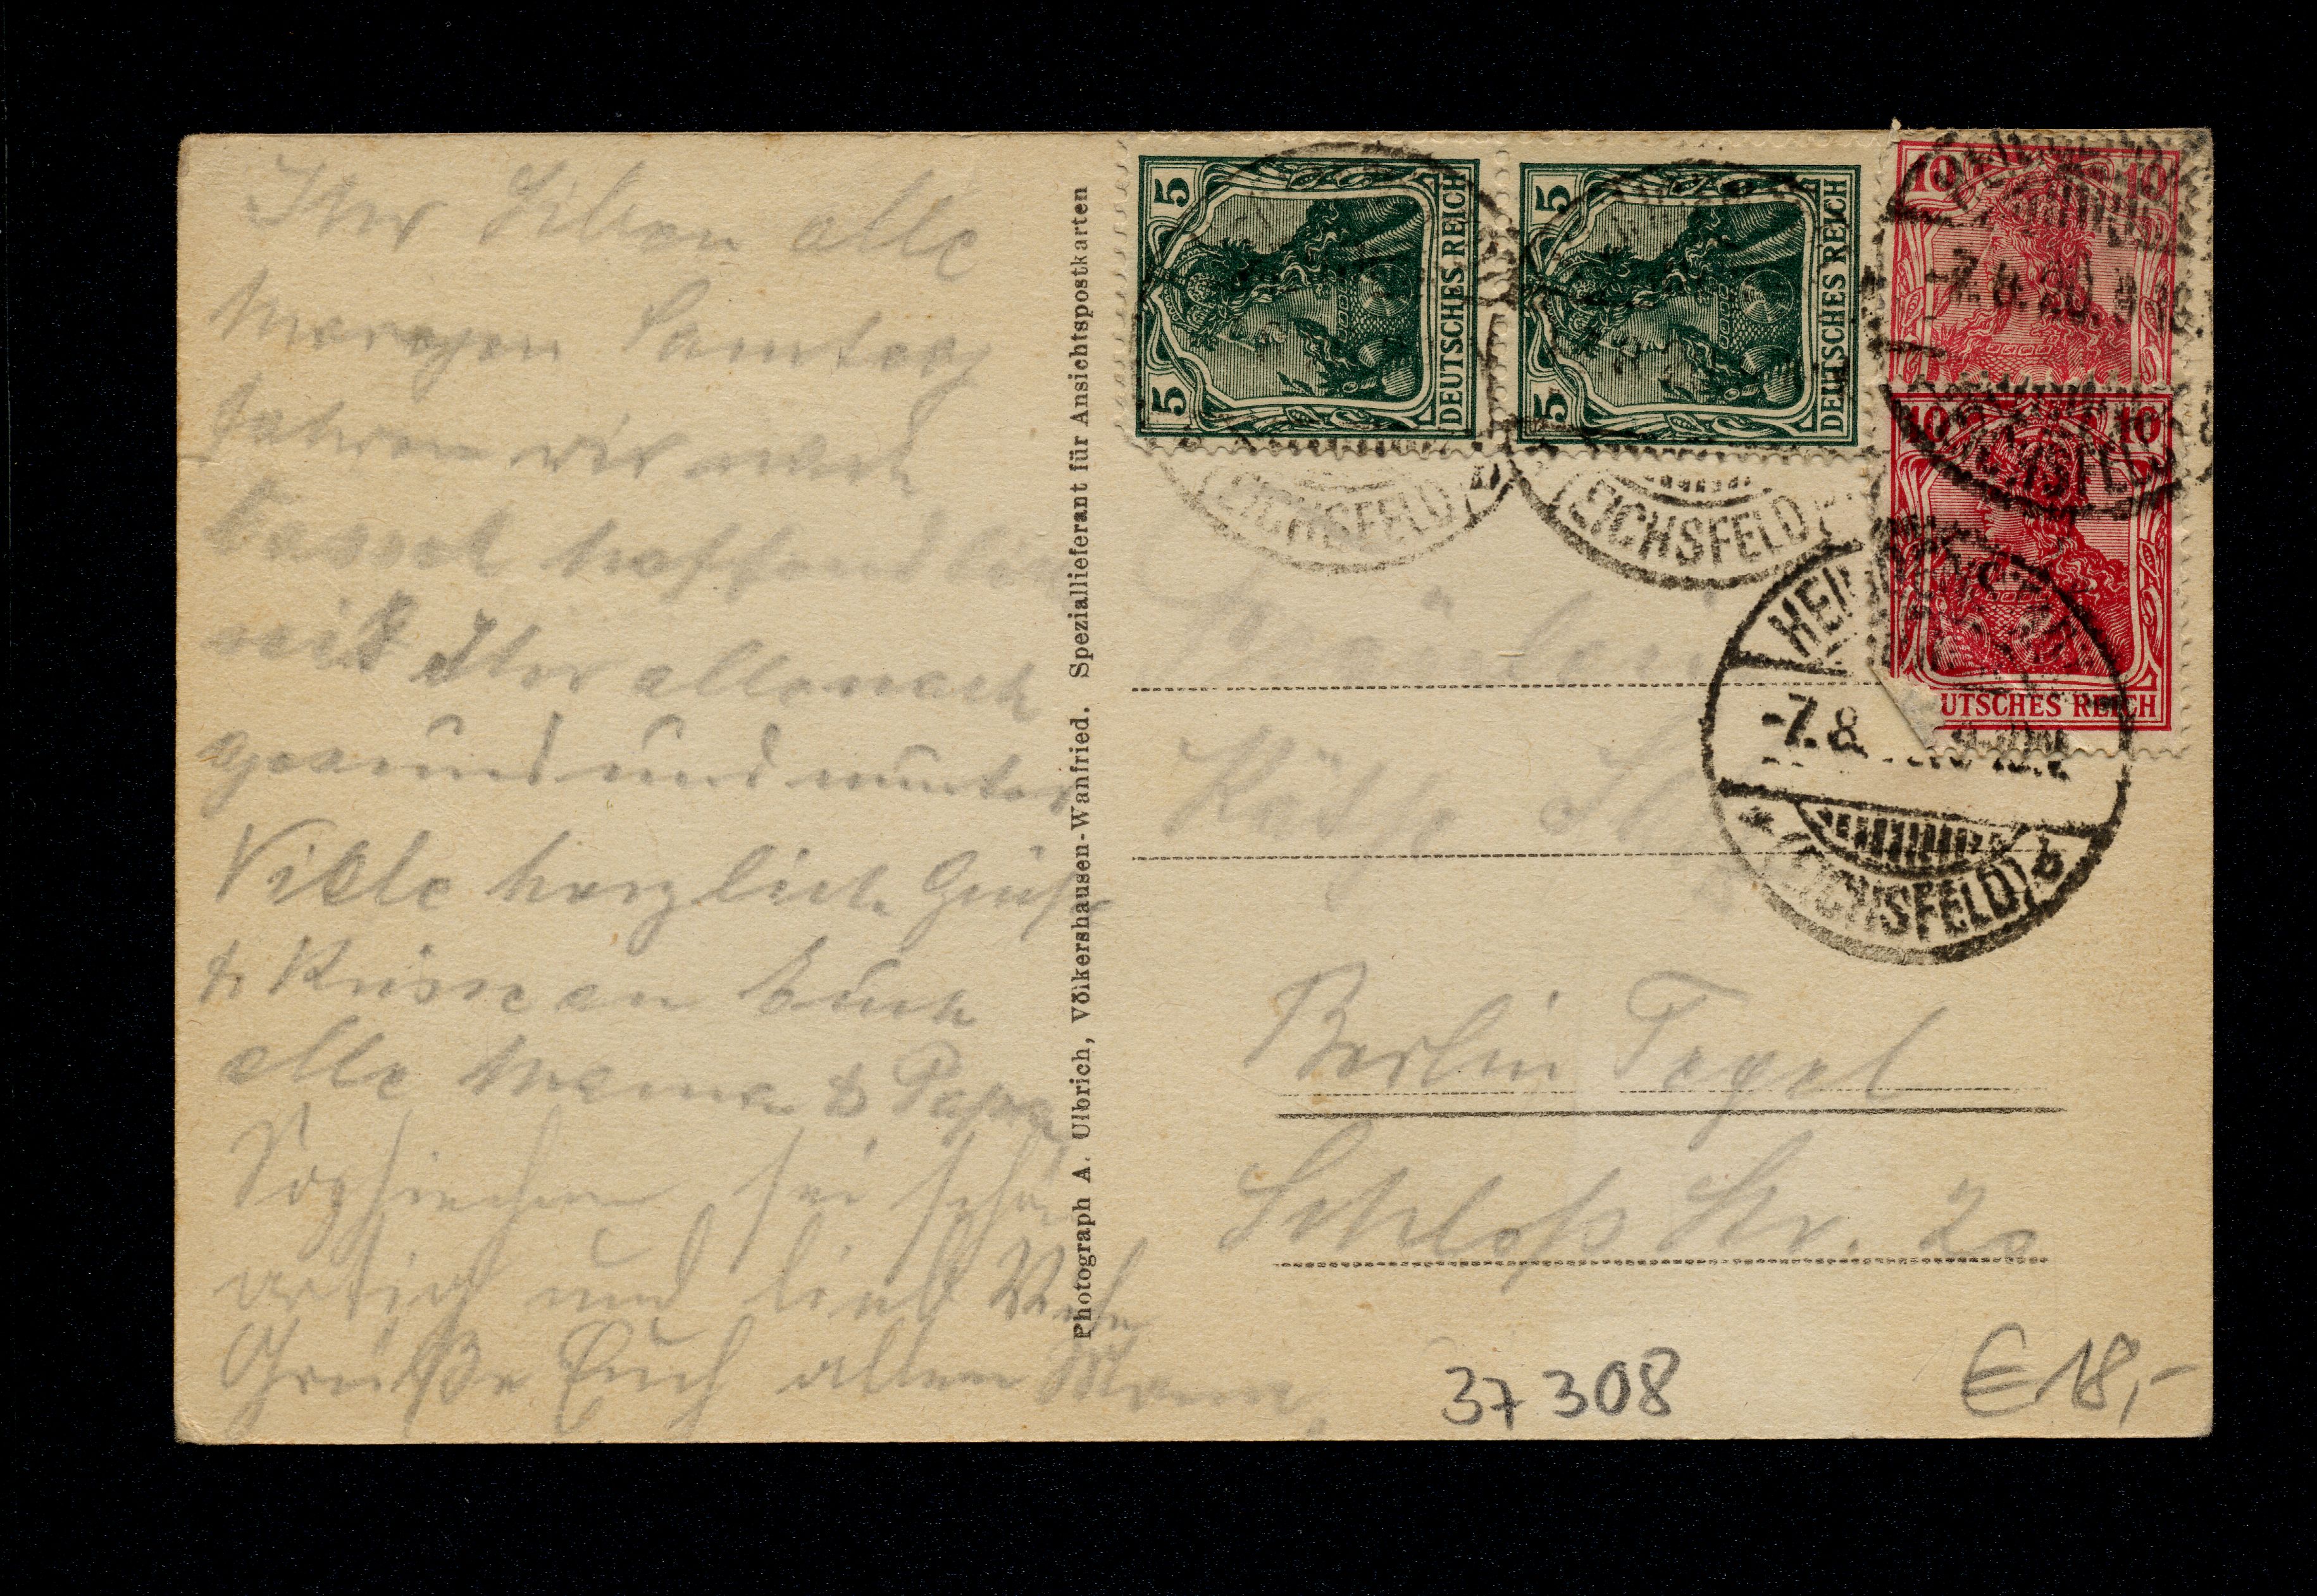 Ihr Lieben alle
Morgen Samtag
fahren wir nach
Kassel hoffendlich
seit Ihr alle nach
gesund und munter
Viele herzlich Grüße
& Küsse an Euch
alle Mama & Papa,
sei schön
artig und lieb
Grüße Euch allen
Photograph A. Ulbrich, Völkershausen-Wanfried. Speziallieferant für Ansichtspostkarten
5 5 DEUTSCHES REICH
5 5 DEUTSCHES REICH
10 10
10 10
UTSCHES REICH
(EICHSFELD)
(EICHSFELD)
-7.8.20.
HEIL
-7.8.
* (EICHSFELD) b
Fräulein
Käthe
Berlin Tegel
Schloß Str. 20
37308
€ 18,-